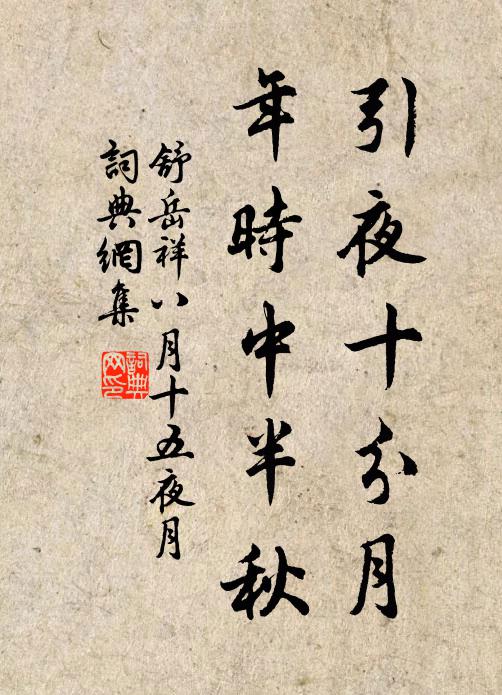 引夜十分月
年時中半秋
舒岳祥八月十五夜月
詞典網集
詞典网印